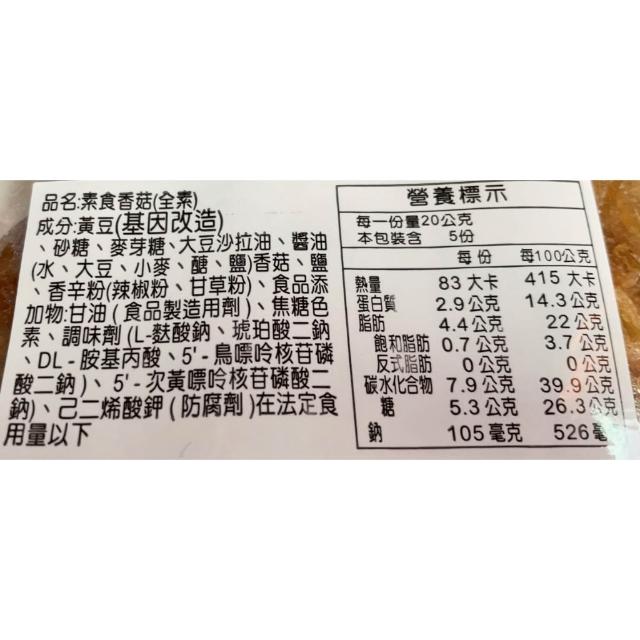 品名:素食香菇(全素)
成分:黃豆(基因改造)
、砂糖、麥芽糖、大豆沙拉油、醬油
(水、大豆、小麥、醣、鹽)香菇、鹽
、香辛粉(辣椒粉、甘草粉)、食品添
加物:甘油(食品製造用劑)、焦糖色
素、調味劑(L-麩酸鈉、琥珀酸二鈉
、DL-胺基丙酸、5'-鳥嘌呤核苷磷
酸二鈉)、5'-次黃嘌呤核苷磷酸二
鈉)、己二烯酸鉀(防腐劑)在法定食
用量以下
營養標示
每一份量20公克
本包裝含 5份
每份 每100公克
熱量 83 大卡 415 大卡
蛋白質 2.9 公克 14.3 公克
脂肪 4.4 公克 22 公克
飽和脂肪 0.7 公克 3.7 公克
反式脂肪 0 公克 0 公克
碳水化合物 7.9 公克 39.9 公克
糖 5.3 公克 26.3 公克
鈉 105 毫克 526 毫